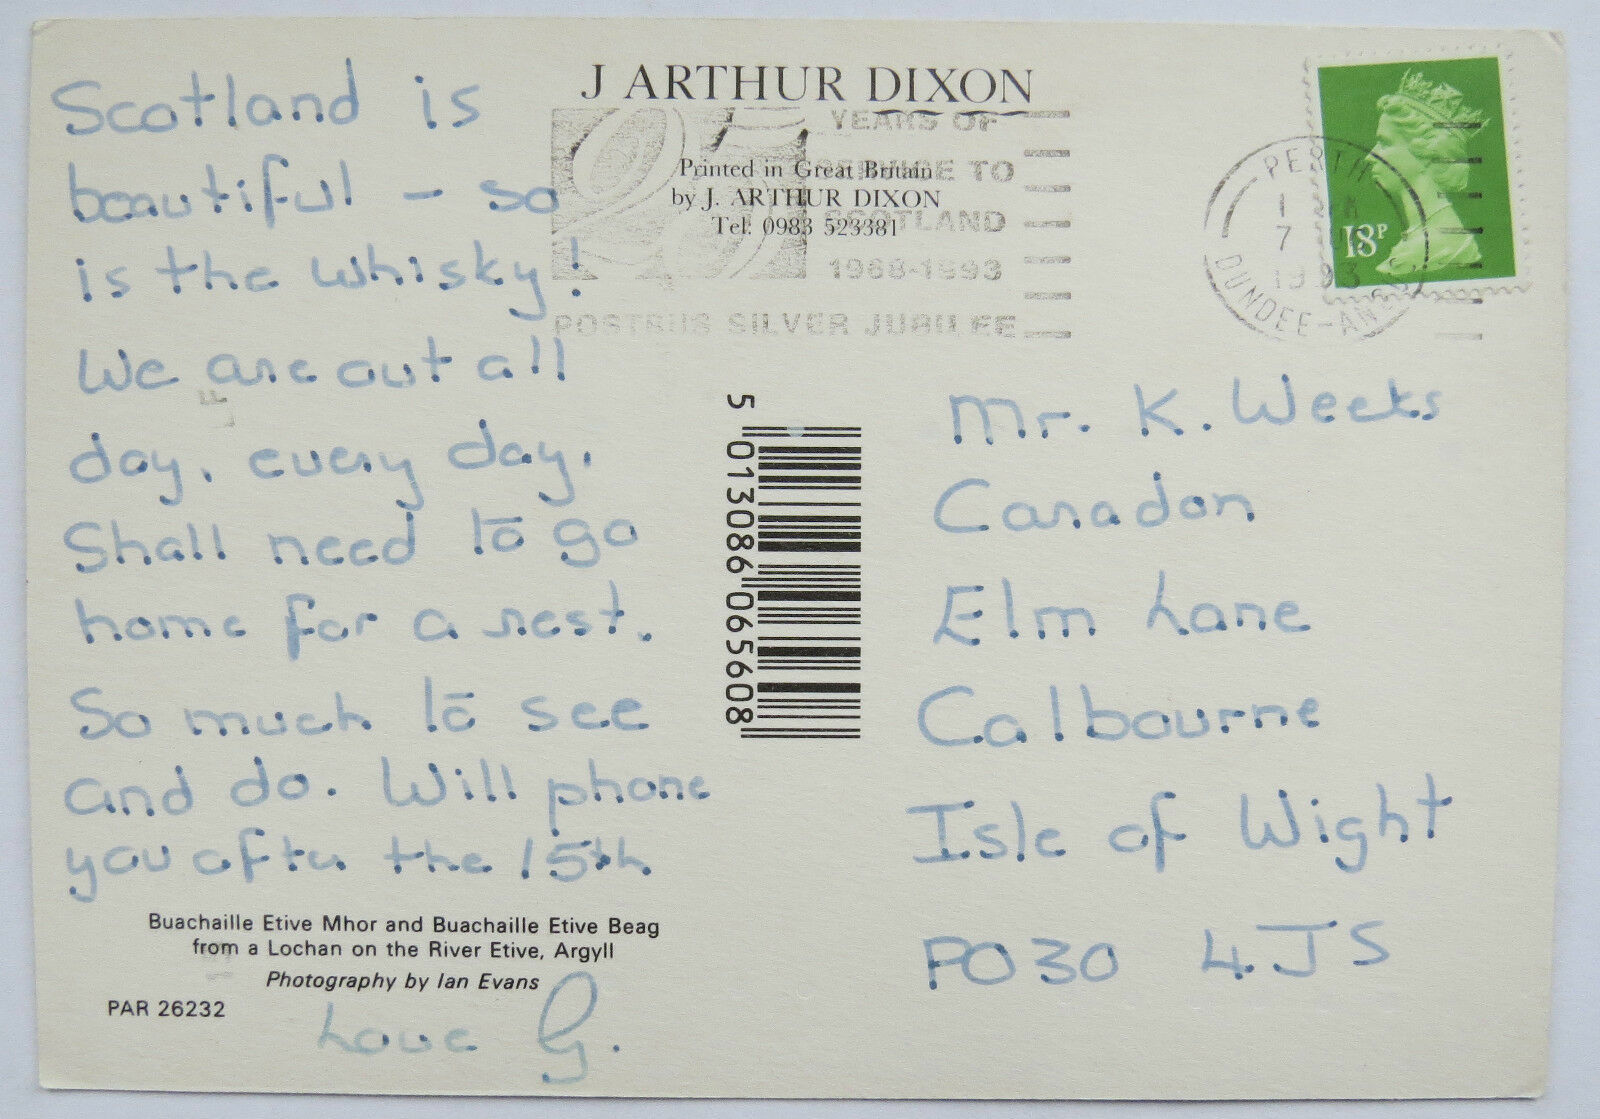 Scotland is
beautiful - so
is the whisky!
We are out all
day, every day.
Shall need to go
home for a rest.
So much to see
and do. Will phone
you after the 15th
Buachaille Etive Mhor and Buachaille Etive Beag
from a Lochan on the River Etive, Argyll
Photography by Ian Evans
PAR 26232
Love G.
J ARTHUR DIXON
Printed in Great Britain
by J. ARTHUR DIXON
Tel: 0983 523381
25 YEARS OF
SERVICE TO
SCOTLAND
1968-1993
POSTBUS SILVER JUBILEE
5 013086 065608
PERTH
7
1993
DUNDEE-
18P
Mr. K. Weeks
Caradon
Elm Lane
Calbourne
Isle of Wight
PO30 4JS